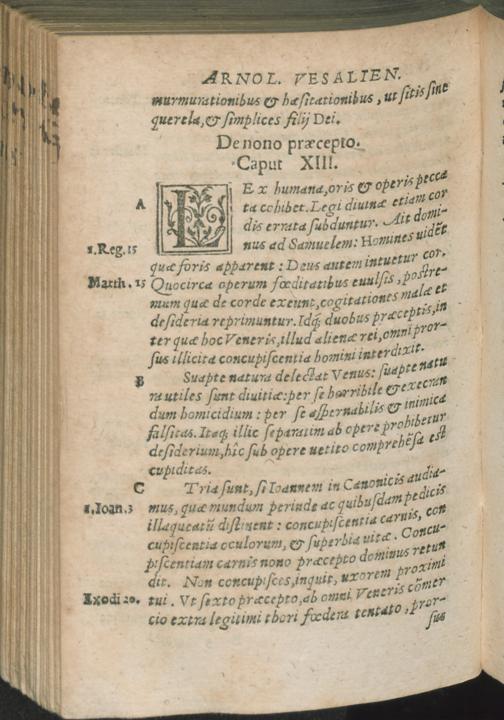 ARNOL. VESALIEN.
murmurationibus & hæsitationibus, ut sitis sine
querela, & simplices filij Dei.
De nono præcepto.
Caput XIII.
A
LEx humana, oris & operis pecca
ta cohibet. Legi diuinæ etiam cor
dis errata subduntur. Ait domi-
nus ad Samuelem: Homines uidẽt
1. Reg. 15
quæ foris apparent: Deus autem intuetur cor.
Matth. 15
Quocirca operum fœditatibus euulsis, postre-
mum quæ de corde exeunt, cogitationes malæ et
desideria reprimuntur. Idq; duobus præceptis, in
ter quæ hoc Veneris, illud alienæ rei, omni pror-
sus illicita concupiscentia homini interdixit.
B
Suapte natura delectat Venus: suapte natu
ra utiles sunt diuitiæ: per se horribile & execran
dum homicidium: per se aspernabilis & inimica
falsitas. Itaq; illic separatim ab opere prohibetur
desiderium, hîc sub opere uetito comprehẽsa est
cupiditas.
C
Tria sunt, si Ioannem in Canonicis audia-
1. Ioan. 3
mus, quæ mundum perinde ac quibusdam pedicis
illaqueatũ distinent: concupiscentia carnis, con
cupiscentia oculorum, & superbia uitæ. Concu-
piscentiam carnis nono præcepto dominus retun
dit. Non concupisces, inquit, uxorem proximi
Exodi 20.
tui. Vt sexto præcepto, ab omni Veneris cõmer
cio extra legitimi thori fœdera tentato, pror-
sus